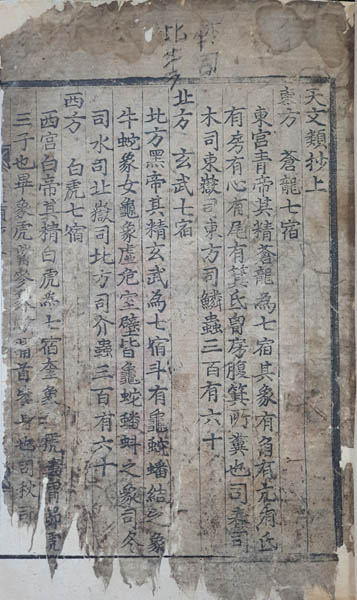 天文類抄上
東方 蒼龍七宿
東宮青帝其精蒼龍為七宿其象有角有亢有氐
有房有心有尾有箕氐胷房腹箕所糞也司春司
木司東嶽司東方司鱗蟲三百有六十
北方 玄武七宿
北方黑帝其精玄武為七宿斗有龜蛇蟠結之象
牛蛇象女龜象虛危室壁皆龜蛇蟠蚪之象司冬
司水司北嶽司北方司介蟲三百有六十
西方 白虎七宿
西宮白帝其精白虎為七宿奎象虎婁胃昴虎
三子也畢象虎觜參象觜首參身也司秋司